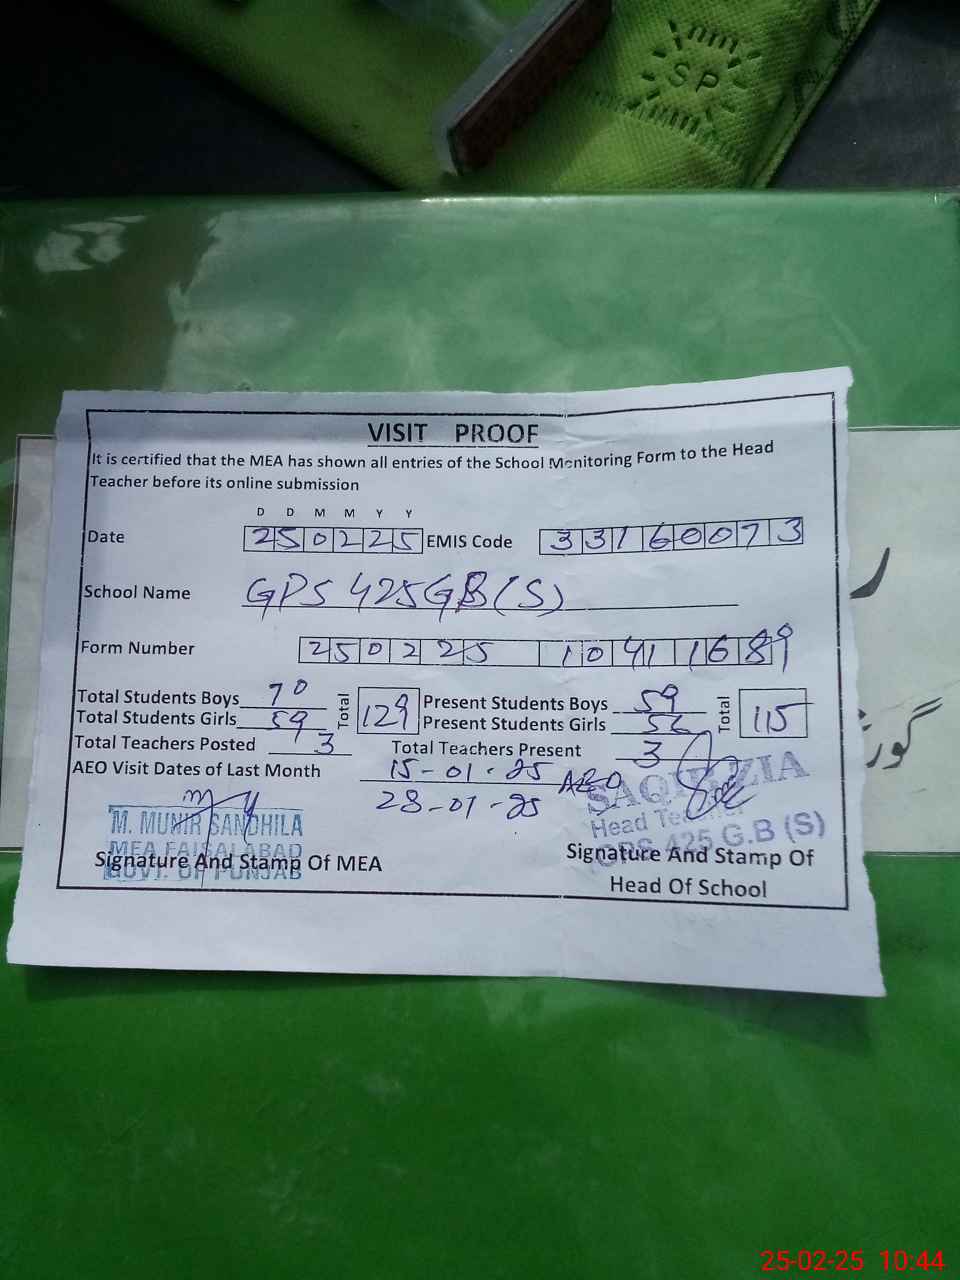 SP
VISIT PROOF
It is certified that the MEA has shown all entries of the School Monitoring Form to the Head
Teacher before its online submission
D D M M Y Y
Date 250225 EMIS Code 33160073
School Name GPS 425GB(S)
Form Number 250225 10411689
Total Students Boys 70 Total 129 Present Students Boys 59 Total 115
Total Students Girls 59 Present Students Girls 56
Total Teachers Posted 3 Total Teachers Present 3
AEO Visit Dates of Last Month 15-01-25 AEO
28-01-25
M. MUNIR SANDHILA
MEA FAISALABAD
GOVT. OF PUNJAB
Signature And Stamp Of MEA
SAQIB ZIA
Head Teacher
GPS 425 G.B (S)
Signature And Stamp Of
Head Of School
25-02-25 10:44